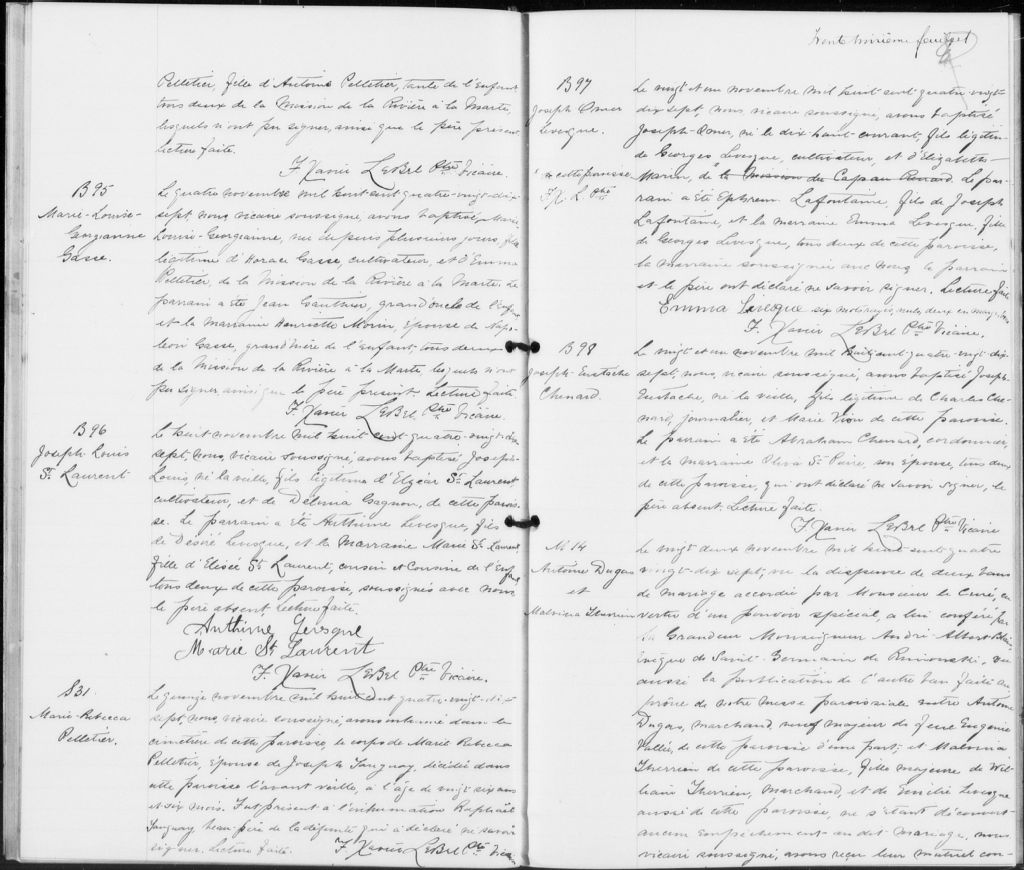 Pelletier, fille d'Antoine Pelletier, tante de l'enfant
tous deux de la Mission de la Rivière à la Marte,
lesquels n'ont pu signer, ainsi que le père présent
Lecture faite.
F. Xavier LeBel Ptre Vicaire.
B 95
Marie-Louise-
Georgianne
Gasse.
Le quatre novembre mil huit cent quatre-vingt-dix
sept, nous, vicaire soussigné, avons baptisé Marie
Louise-Georgianne, née depuis plusieurs jours, fille
légitime d'Horace Gasse, cultivateur, et d'Emma
Pelletier, de la Mission de la Rivière à la Marte. Le
parrain a été Jean Gauthier, grand oncle de l'enfant
et la marraine Henriette Morin, épouse de Napo-
léon Gasse, grand'mère de l'enfant, tous deux
de la Mission de la Rivière à la Marte lesquels n'ont
pu signer, ainsi que le père présent. Lecture faite
F. Xavier LeBel Ptre Vicaire.
B 96
Joseph Louis
St Laurent
Le huit novembre mil huit cent quatre-vingt-dix
sept, nous, vicaire soussigné, avons baptisé Joseph-
Louis, né la veille, fils légitime d'Elzéar St Laurent
cultivateur, et de Delima Gagnon, de cette parois-
se. Le parrain a été Anthime Levesque, fils
de Désiré Levesque, et la marraine Marie St Laurent
fille d'Elisée St Laurent, cousin et cousine de l'enfant
tous deux de cette paroisse, soussignés avec nous
le père absent Lecture faite.
Anthime Levesque
Marie St Laurent
F. Xavier LeBel Ptre Vicaire.
S31
Marie-Rebecca
Pelletier.
Le quinze novembre mil huit cent quatre-vingt-dix-
sept, nous, vicaire soussigné, avons inhumé dans le
cimetière de cette paroisse, le corps de Marie Rebecca
Pelletier, épouse de Joseph Tanguay, décédée dans
cette paroisse l'avant veille, à l'âge de vingt six ans
et six mois. Fut présent à l'inhumation Raphaël
Tanguay beau-père de la défunte qui a déclaré ne savoir
signer. Lecture faite
F. Xavier LeBel Ptre Vicaire
Trente troisième feuillet
B 97
Joseph Omer
Levesque.
Le vingt et un novembre mil huit cent quatre vingt
dix sept, nous, vicaire soussigné, avons baptisé
Joseph-Omer, né le dix huit courant, fils légitime
de Georges Levesque, cultivateur, et d'Elizabeth
Marin, de la mission du Cap au Renard. Le par-
rain a été Ephrem Lafontaine, fils de Joseph
Lafontaine, et la marraine Emma Levesque, fille
de Georges Levesque, tous deux de cette paroisse,
la marraine soussignée avec nous, le parrain
et le père ont déclaré ne savoir signer. Lecture faite
de cette paroisse
F. X. L. Ptre
Emma Levesque six mots rayés, nuls, deux en marge, bons
F. Xavier LeBel Ptre Vicaire.
B 98
Joseph-Eustache
Chenard.
Le vingt et un novembre mil huit cent quatre-vingt-dix-
sept, nous, vicaire soussigné, avons baptisé Joseph-
Eustache, né la veille, fils légitime de Charles Che-
nard, journalier, et Marie Dion de cette paroisse.
Le parrain a été Abraham Chenard, cordonnier,
et la marraine Oliva St Pierre, son épouse, tous deux
de cette paroisse, qui ont déclaré ne savoir signer, le
père absent. Lecture faite.
F. Xavier LeBel Ptre Vicaire
M. 14
Antoine Dugas
et
Malvina Therrien
Le vingt deux novembre mil huit cent quatre
vingt-dix sept, vu la dispense de deux bans
de mariage accordée par Monsieur le Curé, en
vertu d'un pouvoir spécial, a lui conféré par
Sa Grandeur Monseigneur André-Albert Blais
Evêque de Saint-Germain de Rimouski, vu
aussi la publication de l'autre ban faite au
prône de notre messe paroissiale entre Antoine
Dugas, marchand, veuf majeur de feue Eugénie
Vallée, de cette paroisse d'une part; et Malvina
Therrien de cette paroisse, fille majeure de Wil-
liam Therrien, Marchand, et de Emélie Levesque
aussi de cette paroisse, ne s'étant découvert
aucun empêchement au dit mariage, nous
vicaire soussigné, avons reçu leur mutuel con-